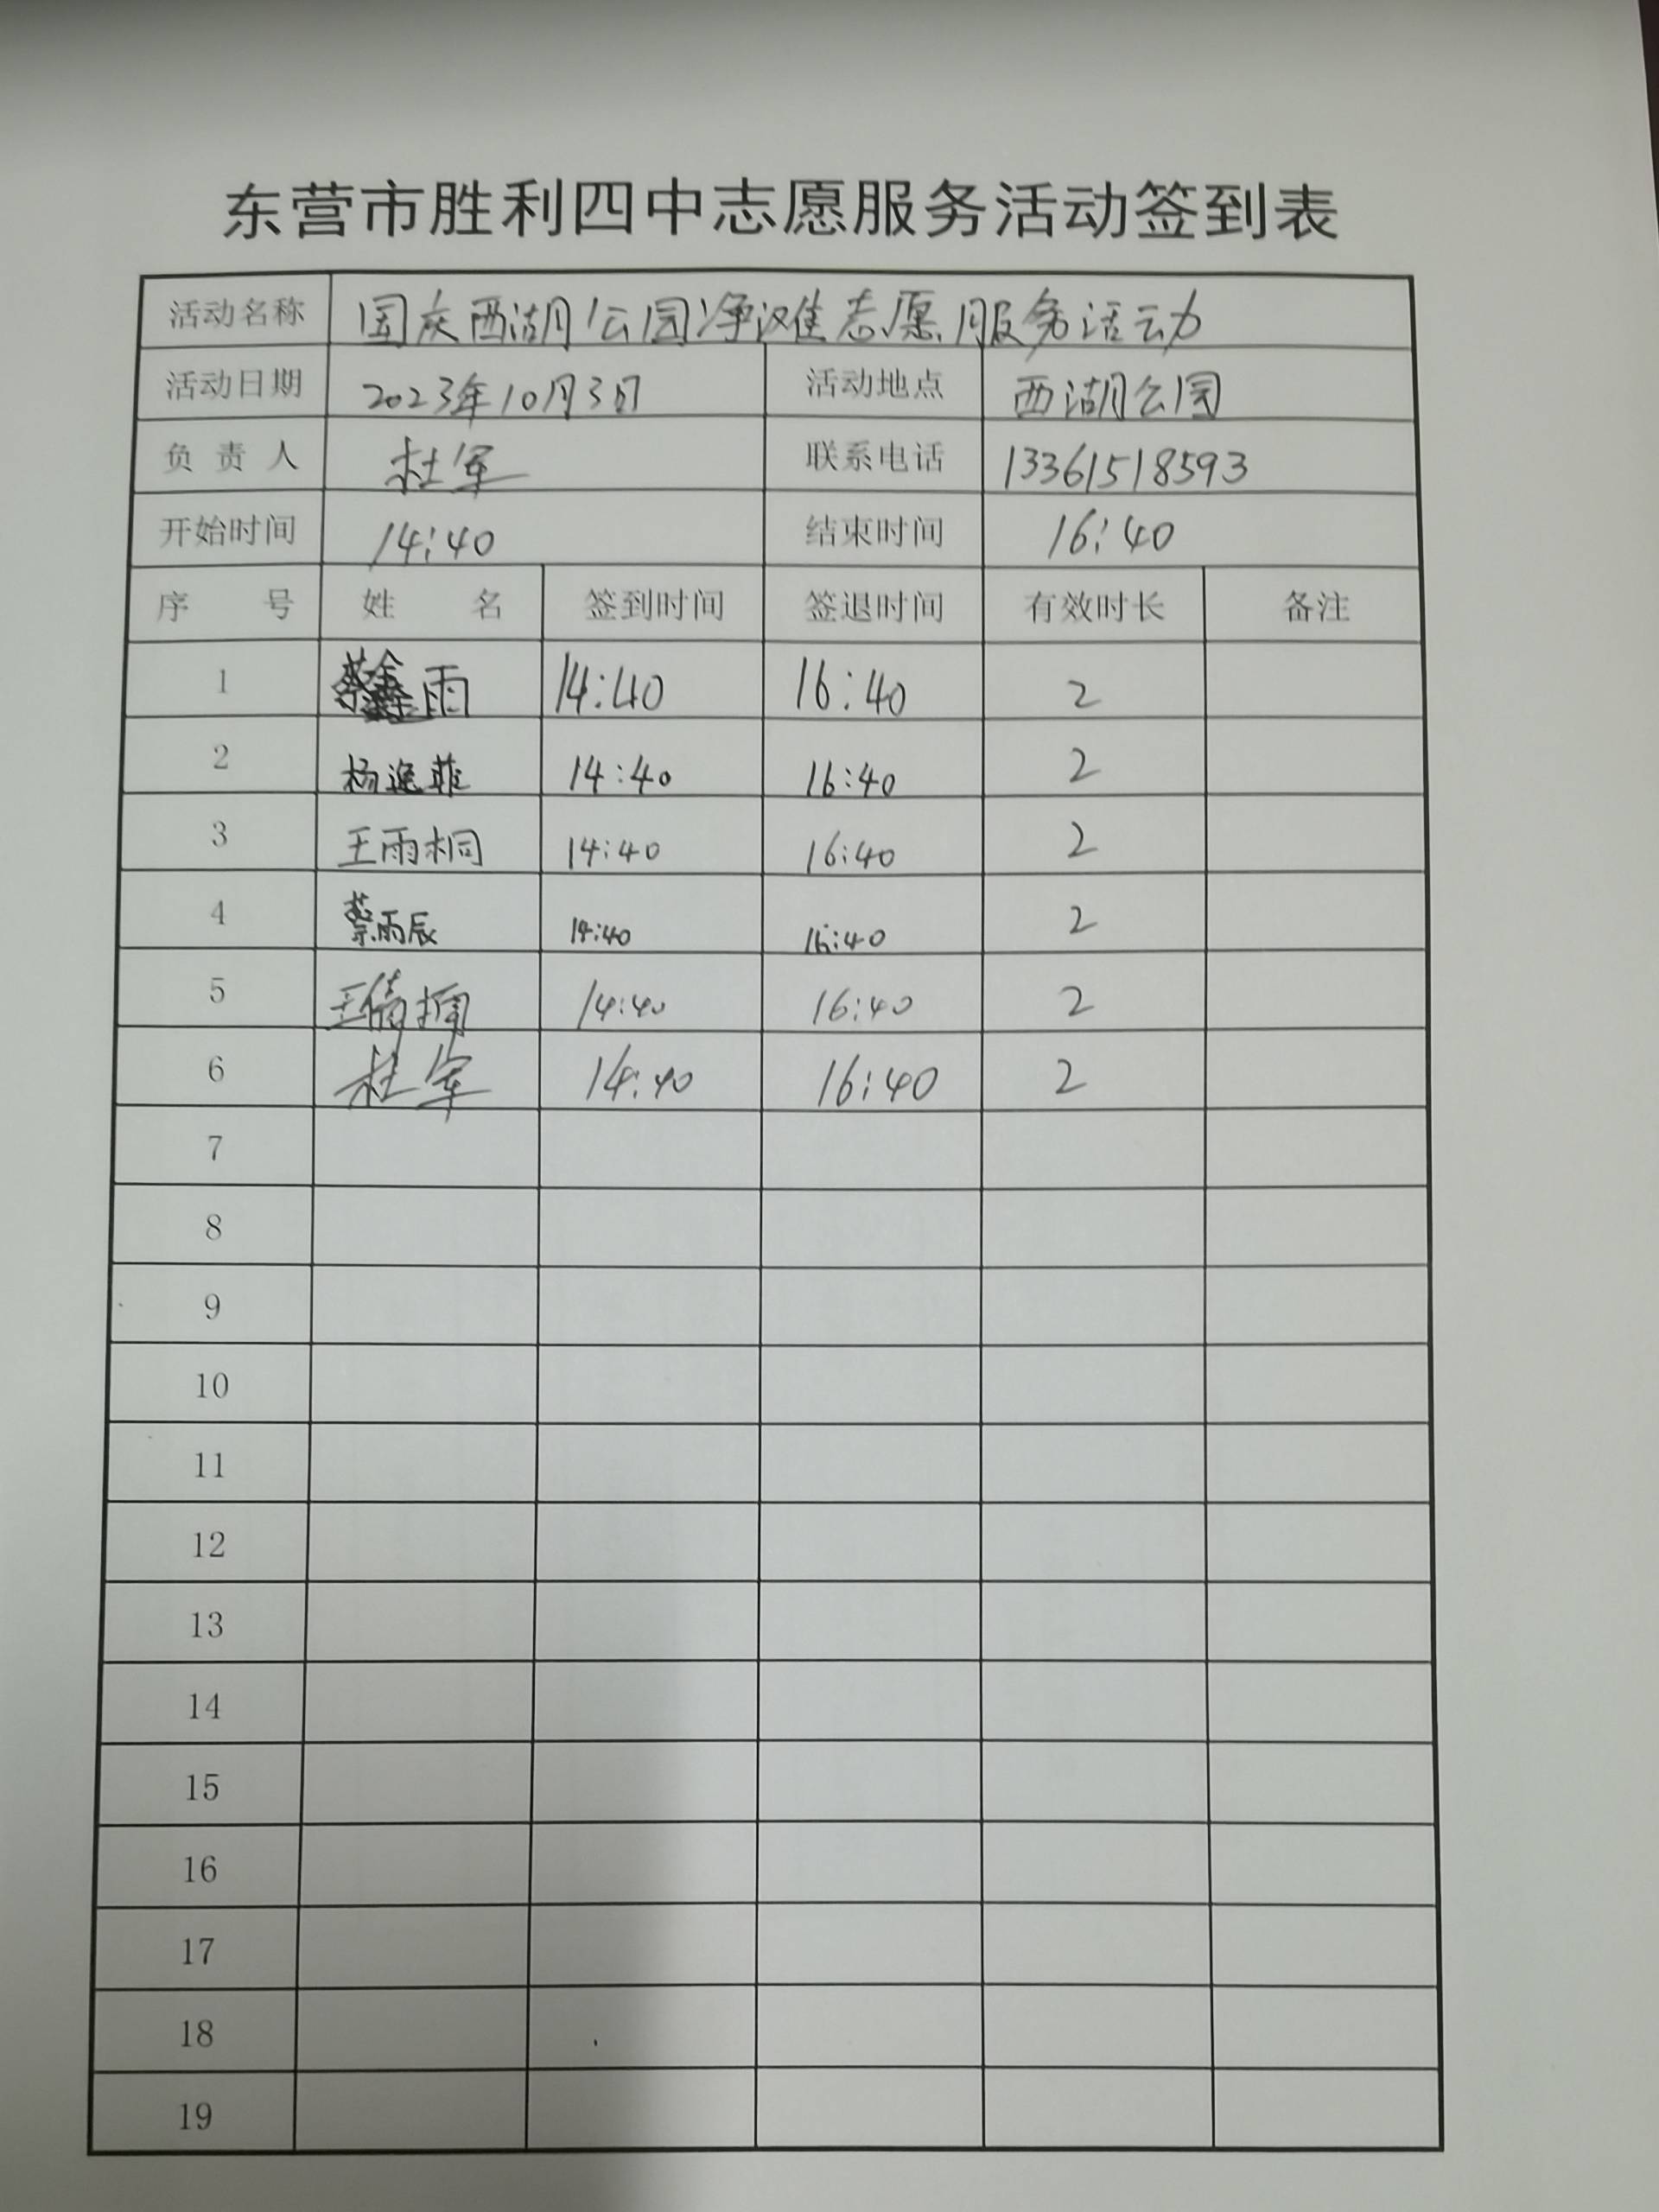 东营市胜利四中志愿服务活动签到表
活动名称 国庆西湖公园净滩志愿服务活动
活动日期 2023年10月3日 活动地点 西湖公园
负责人 杜军 联系电话 13361518593
开始时间 14:40 结束时间 16:40
序号 姓名 签到时间 签退时间 有效时长 备注
1 蔡鑫雨 14:40 16:40 2
2 杨逸菲 14:40 16:40 2
3 王雨桐 14:40 16:40 2
4 蔡雨辰 14:40 16:40 2
5 王倩 14:40 16:40 2
6 杜军 14:40 16:40 2
7
8
9
10
11
12
13
14
15
16
17
18
19